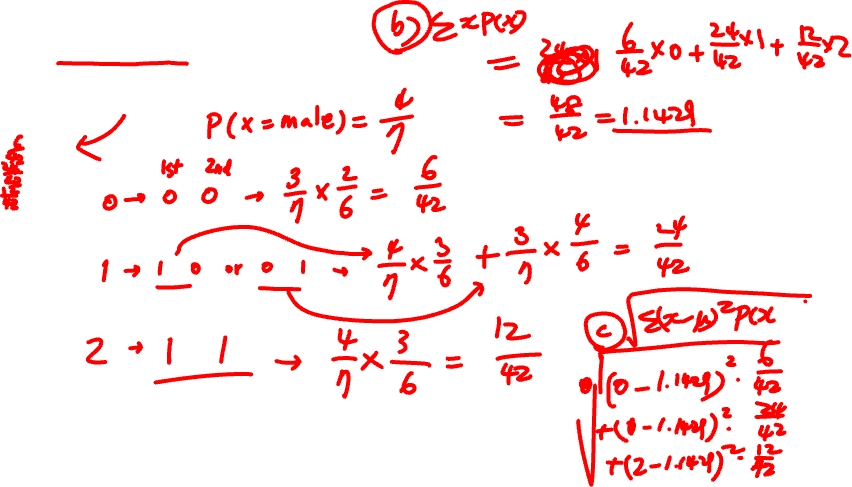 b) Σ x P(x)
= 6/42 × 0 + 24/42 × 1 + 12/42 × 2
= 48/42 = 1.1429
P(x = male) = 4/7
1st 2nd
0 → 0 0 → 3/7 × 2/6 = 6/42
1 → 1 0 or 0 1 → 4/7 × 3/6 + 3/7 × 4/6 = 24/42
2 → 1 1 → 4/7 × 3/6 = 12/42
c) √Σ(x-μ)²P(x
(0 - 1.1429)² · 6/42
+(1 - 1.1429)² · 24/42
+(2 - 1.1429)² · 12/42